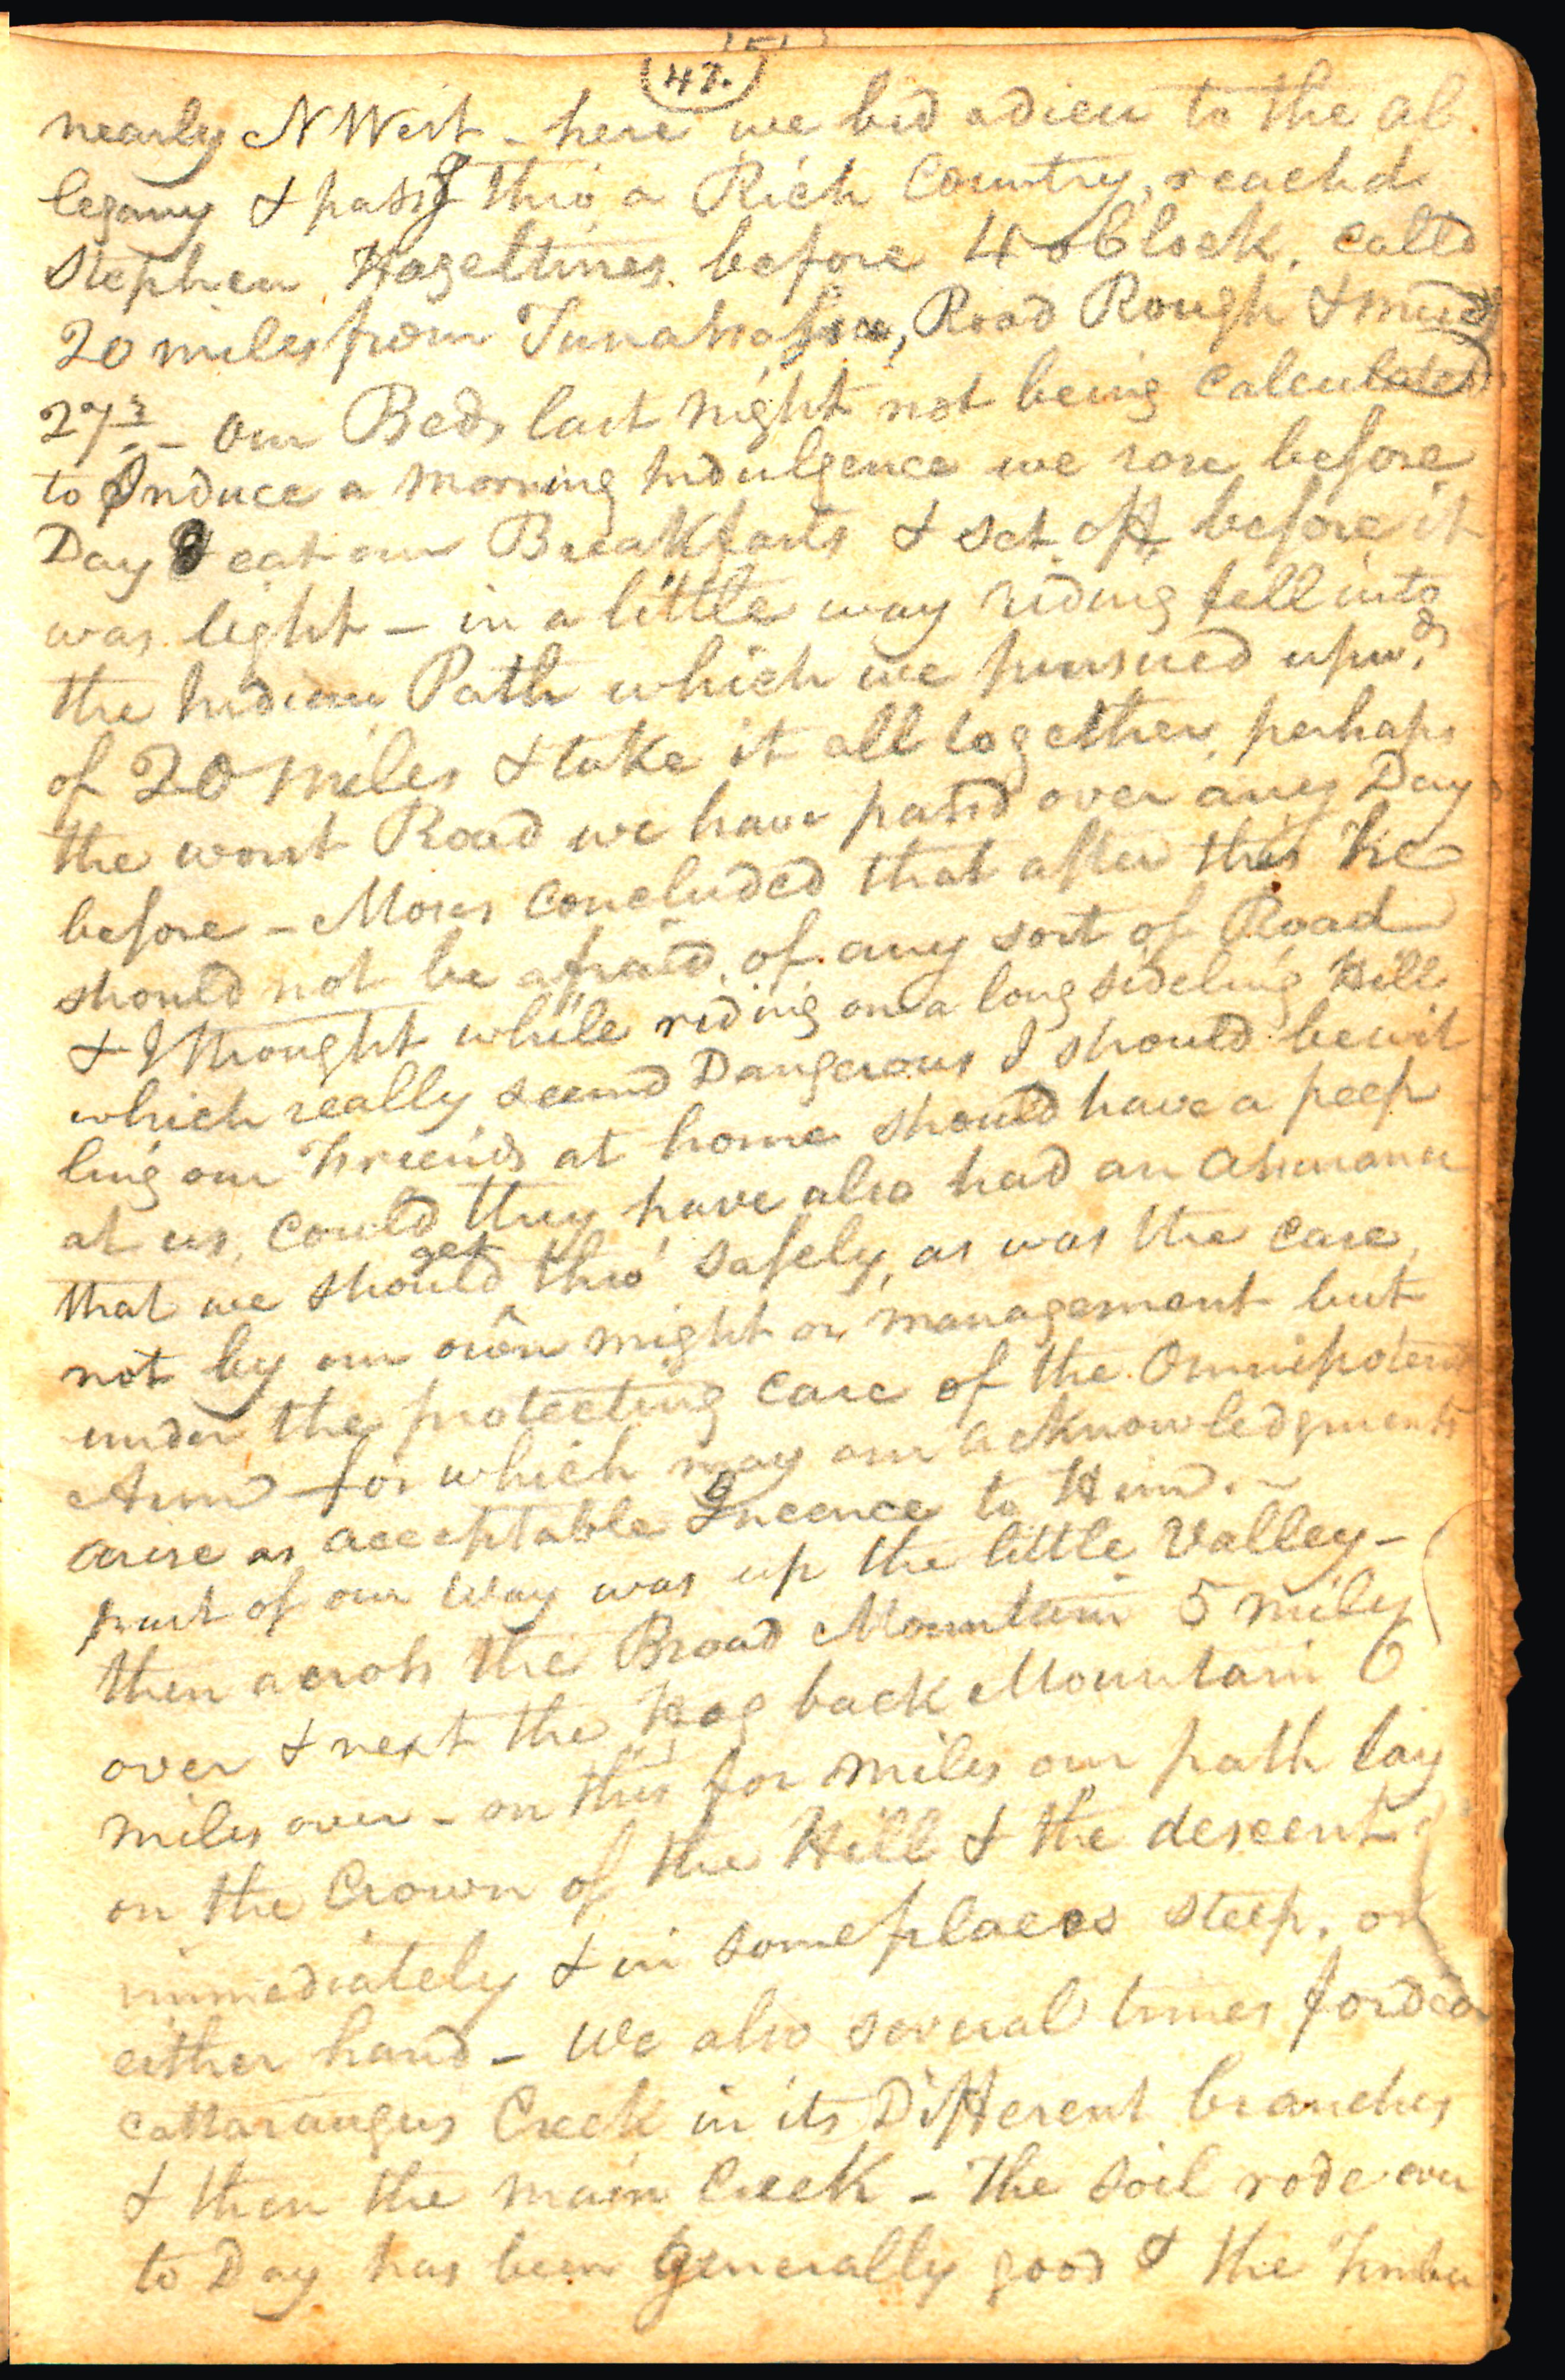 47.
nearly N West - here we bid adieu to the al
legany & passg thro' a Rich Country, reachd
Stephen Hazeltines before 4 oClock. calld
20 miles from Tunahsasse, Road Rough & mudy
27th - Our Beds last night not being calculated
to Induce a morning Indulgence we rose before
Day & eat our Breakfasts & set off before it
was light - in a little way riding fell into
the Indian Path which we pursued upwds
of 20 miles & take it all together perhaps
the worst Road we have passd over any Day
before - Moses concluded that after this He
should not be afraid of any sort of Road
& I thought while riding on a long sideling Hill
which really seemd Dangerous I should be wil
ling our Friends at home should have a peep
at us, could they have also had an assurance
that we should get thro' safely, as was the case,
not by our own might or management but
under the protecting care of the Omnipotent
Arm - for which may our acknowledgments
arise as acceptable Incence to Him. -
part of our Way was up the little Valley -
then across the Broad Mountain 5 miles
over & next the Hog back Mountain 6
miles over - on this for miles our path lay
on the Crown of the Hill & the descent
immediately & in some places steep, on
either hand - We also several times forded
cattaraugus Creek in its Different branches
& then the main Creek - The soil rode over
to Day has been generally good & the Timber